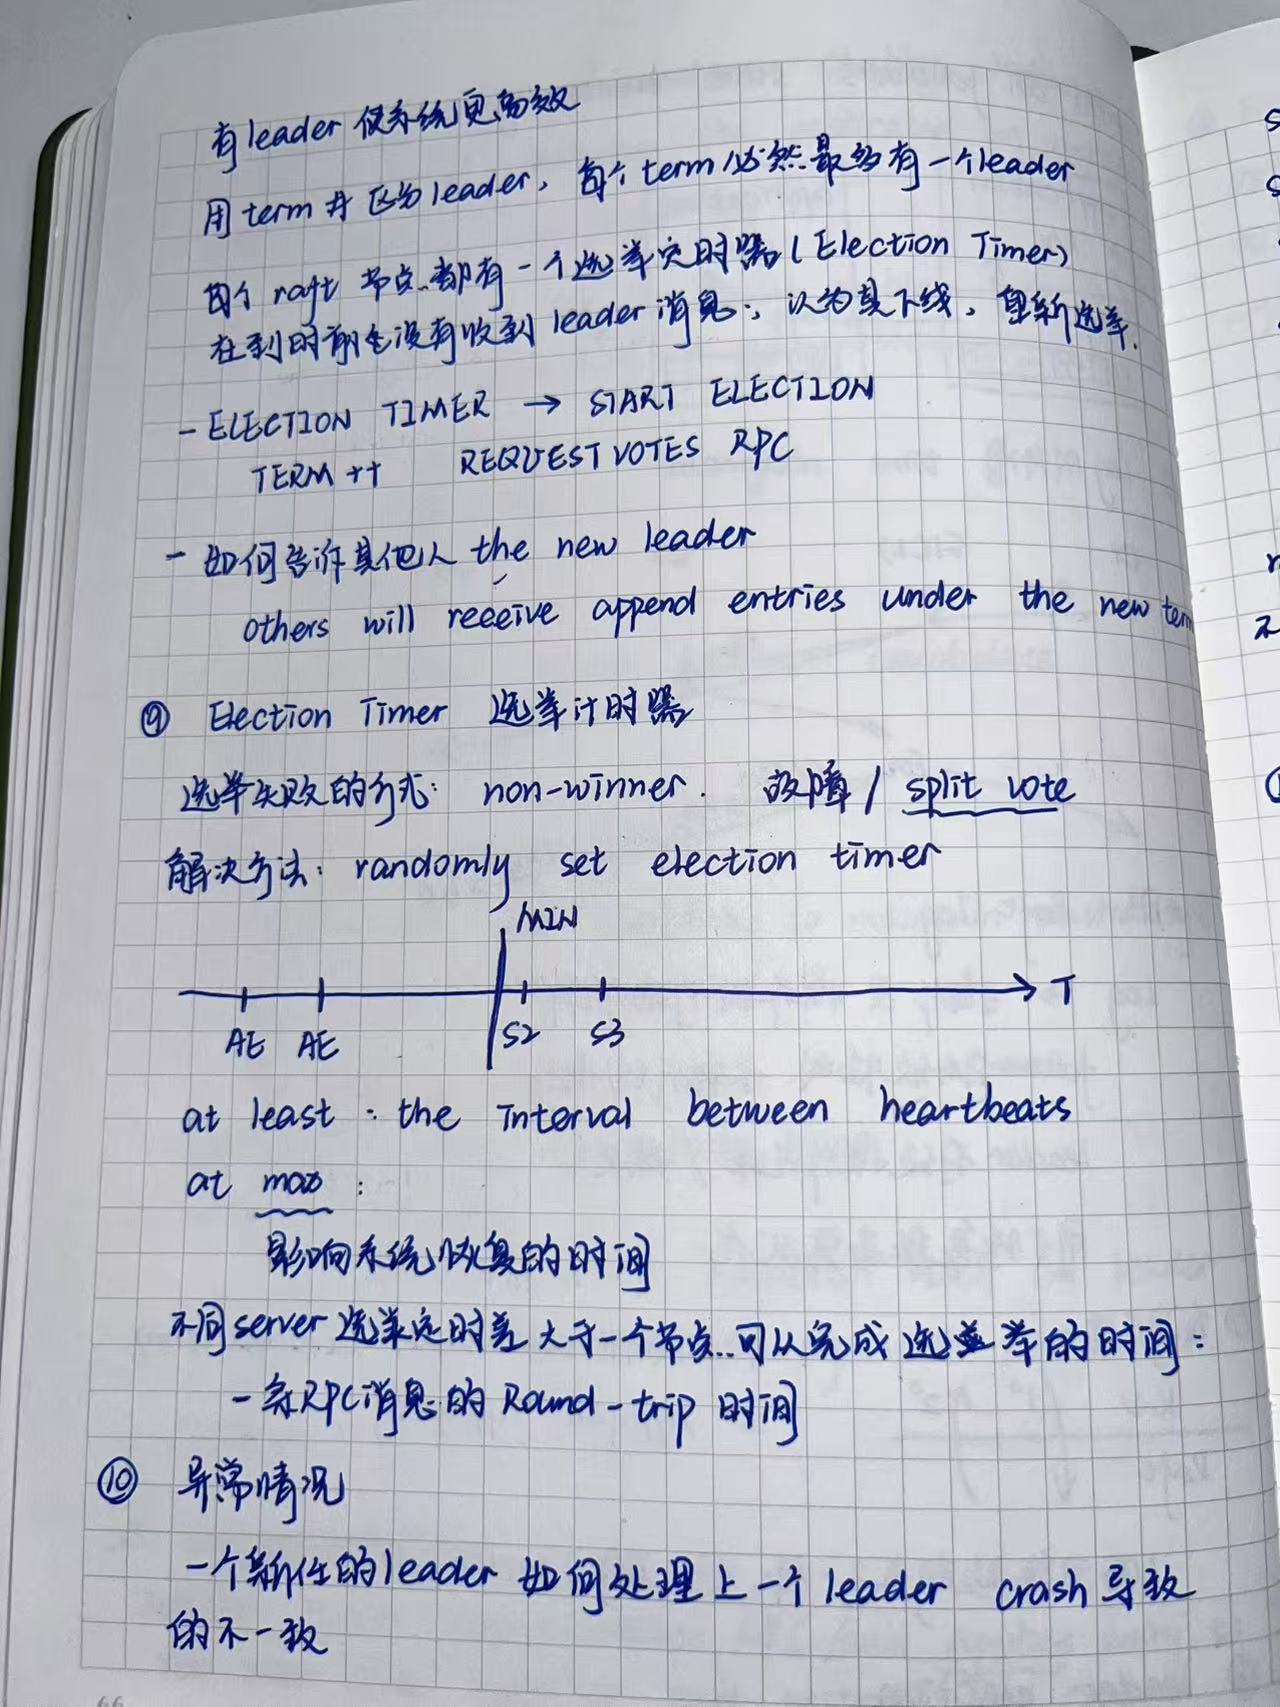 有leader 使系统更高效
用term # 区分leader，每个term必然最多有一个leader
每个 raft 节点都有一个选举定时器(Election Timer)
在到时前仍没有收到leader消息，认为其下线，重新选举.
- ELECTION TIMER → START ELECTION
TERM ++ REQUEST VOTES RPC
- 如何告诉其他人 the new leader
others will receive append entries under the new term
⑨ Election Timer 选举计时器
选举失败的方式: non-winner. 故障 / split vote
解决方法: randomly set election timer
MIN
T
AE AE S2 S3
at least : the interval between heartbeats
at max :
影响系统恢复的时间
不同server 选举定时差 大于一个节点可以完成选举的时间:
一条RPC消息的 Round-trip 时间
⑩ 异常情况
一个新任的leader 如何处理上一个leader crash导致
的不一致
66